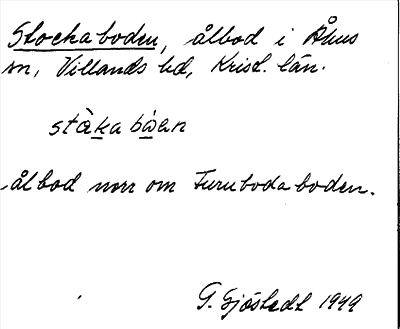 Stockaboden, ålbod i Åhus
sn, Villands hd, Krist. län.
ståka båen
ålbod norr om Furubodaboden.
G. Sjöstedt 1949